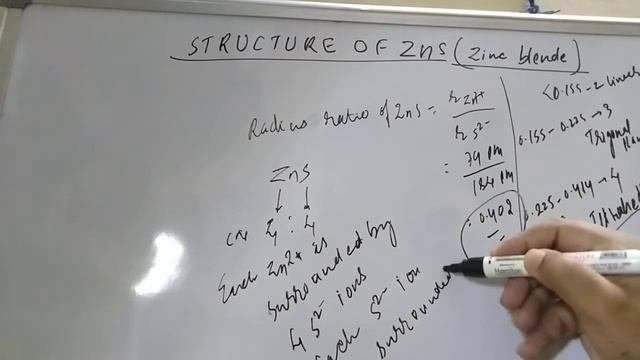 STRUCTURE OF ZnS (Zinc blende)
Radius ratio of ZnS = r Zn²⁺
r S²⁻
= 74 pm
184 pm
= 0.402
ZnS
↓ ↓
CN 4 : 4
Each Zn²⁺ is
surrounded by
4 S²⁻ ions
Each S²⁻ ion
surrounded
<0.155 - 2
0.155 - 0.225 → 3
0.225 - 0.414 → 4